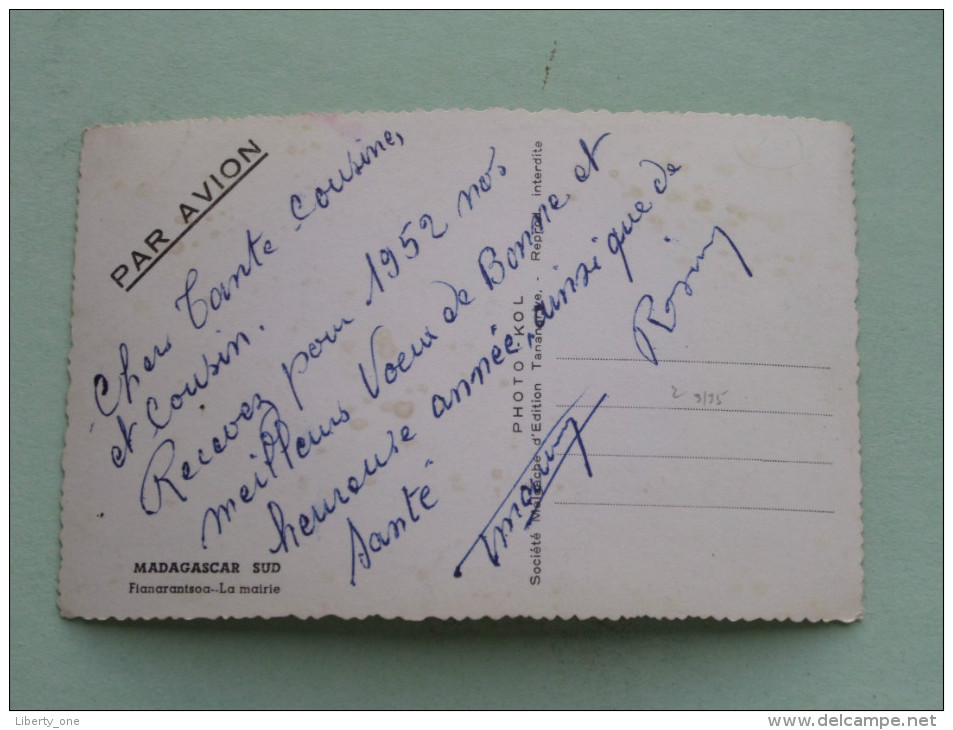 PAR AVION
Chers Tante Cousine,
et Cousin.
Recevez pour 1952 nos
meilleurs Voeux de Bonne et
heureuse année, ainsi que de
Santé
Rosiny
PHOTO-KOL
Société Malgache d'Edition Tananarive. - Reprod. interdite
2 9/35
MADAGASCAR SUD
Fianarantsoa--La mairie
Liberty_one
www.delcampe.net